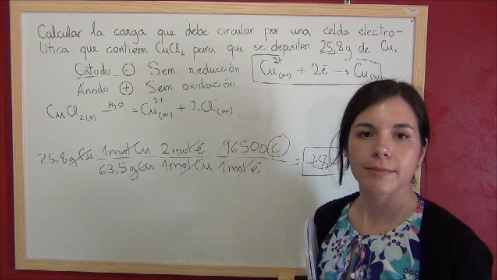 Calcular la carga que debe circular por una celda electro-
lítica que contiene CuCl2 para que se depositen 25,8g de Cu.
Cátodo ⊖ Sem reducción Cu2+(ac) + 2ē → Cu(s)
Ánodo ⊕ Sem oxidación
CuCl2(s) H2O→ Cu2+(ac) + 2Cl-(ac)
25,8gCu 1molCu 2molē 96500C
63,5gCu 1molCu 1molē =